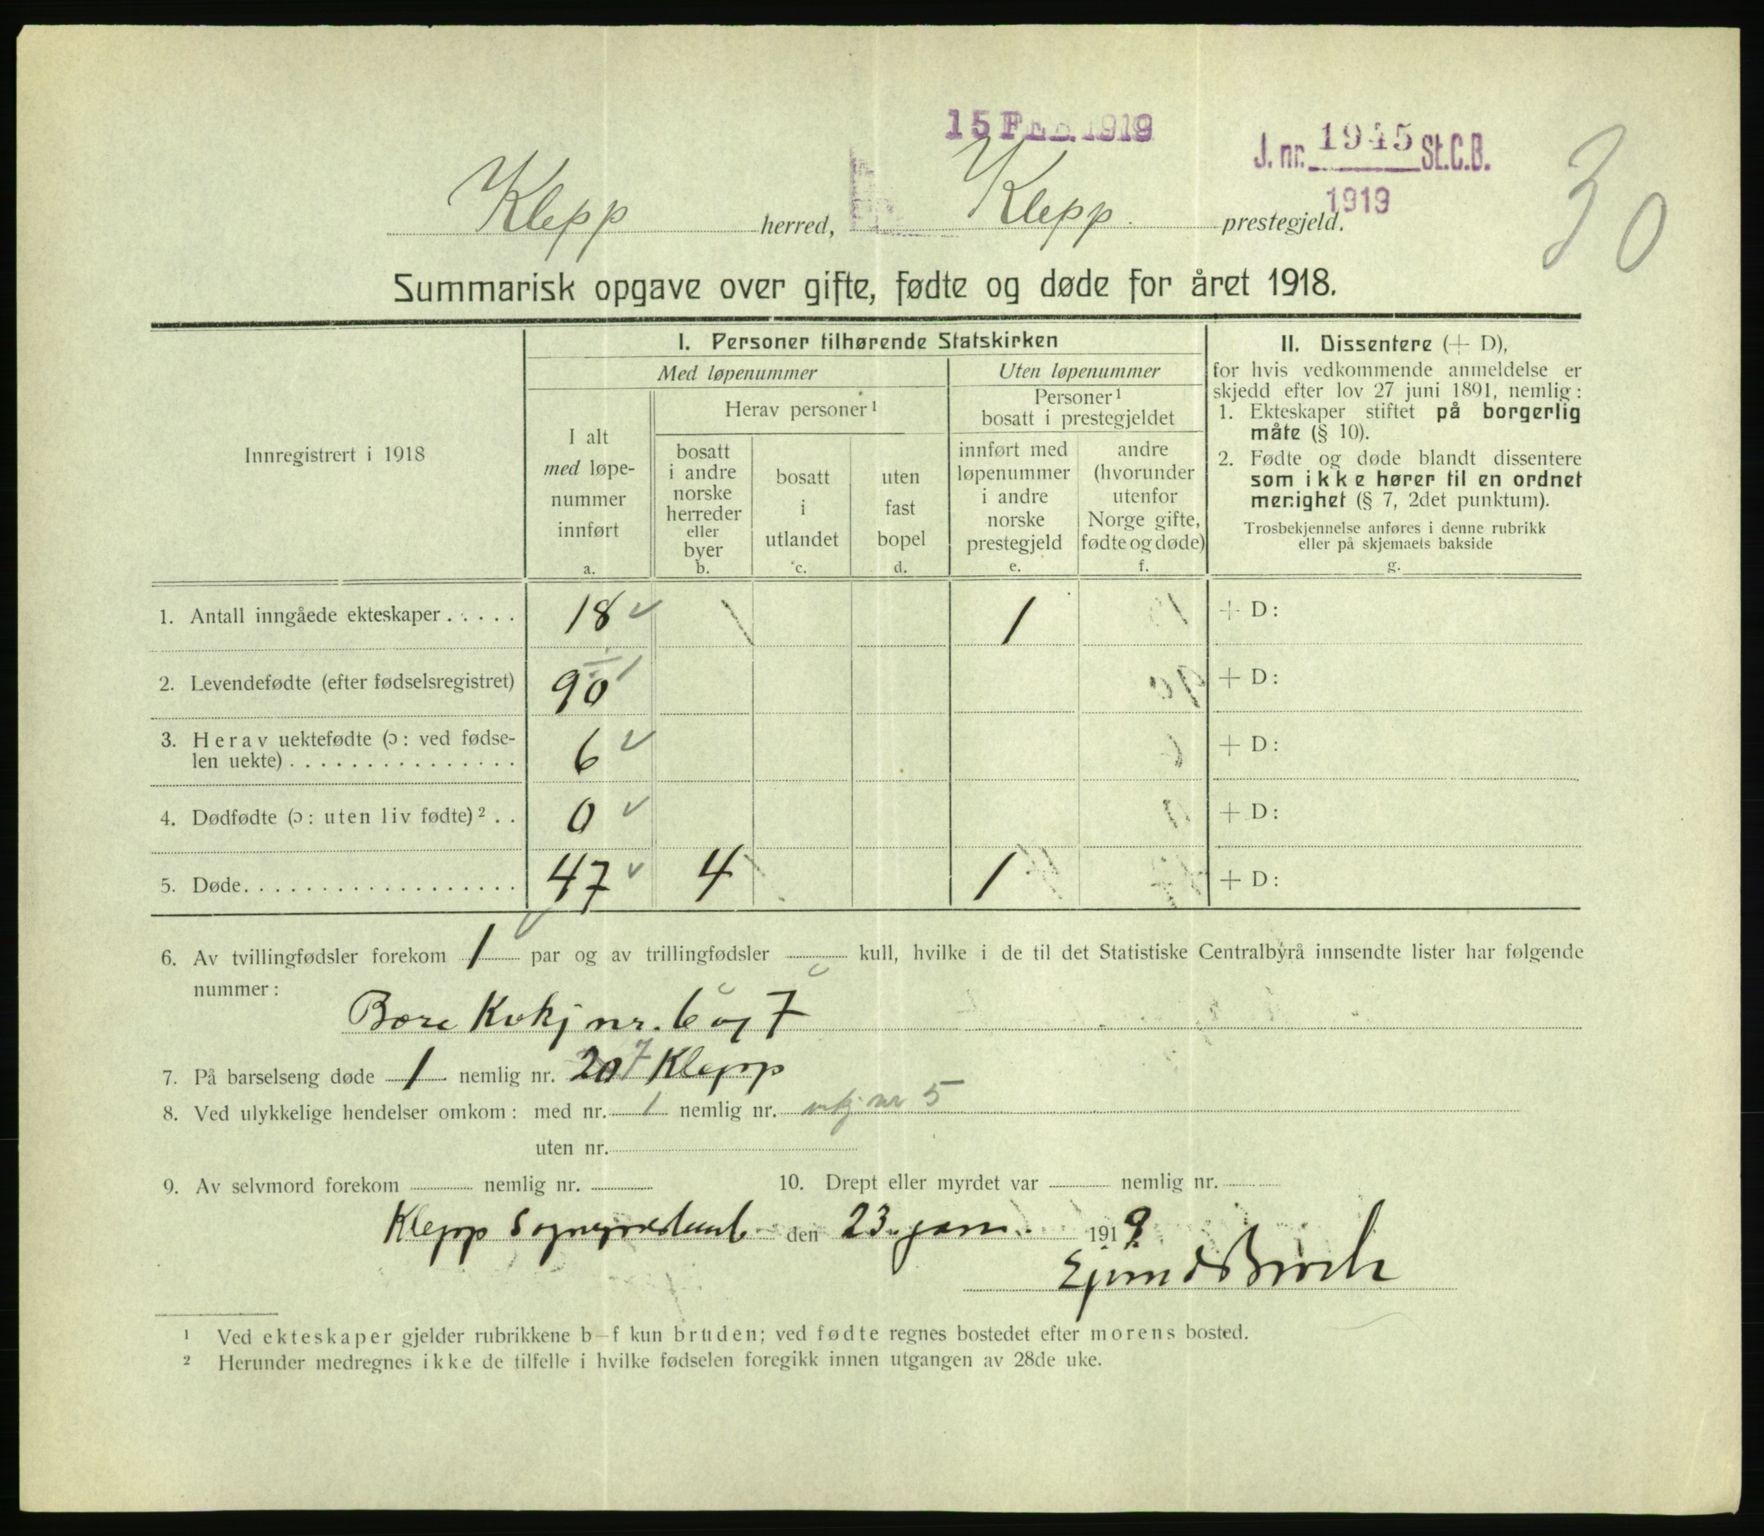 15 FEB. 1919
J. nr. 1945 St.C.B.
1919
30
Klepp herred, Klepp. prestegjeld.
Summarisk opgave over gifte, fødte og døde for året 1918.
Innregistrert i 1918
I. Personer tilhørende Statskirken
Med løpenummer
Uten løpenummer
I alt
med løpe-
nummer
innført
a.
Herav personer ¹
bosatt
i andre
norske
herreder
eller
byer
b.
bosatt
i
utlandet
c.
uten
fast
bopel
d.
Personer ¹
bosatt i prestegjeldet
innført med
løpenummer
i andre
norske
prestegjeld
e.
andre
(hvorunder
utenfor
Norge gifte,
fødte og døde)
f.
II. Dissentere (+ D),
for hvis vedkommende anmeldelse er
skjedd efter lov 27 juni 1891, nemlig:
1. Ekteskaper stiftet på borgerlig
måte (§ 10).
2. Fødte og døde blandt dissentere
som ikke hører til en ordnet
menighet (§ 7, 2det punktum).
Trosbekjennelse anføres i denne rubrikk
eller på skjemaets bakside
g.
1. Antall inngåede ekteskaper ..... 18 1 + D:
2. Levendefødte (efter fødselsregistret) 90 + D:
3. Herav uektefødte (ɔ: ved fødse-
len uekte) ............... 6 + D:
4. Dødfødte (ɔ: uten liv fødte) ² .. 0 + D:
5. Døde.................. 47 4 1 + D:
6. Av tvillingfødsler forekom 1 par og av trillingfødsler kull, hvilke i de til det Statistiske Centralbyrå innsendte lister har følgende
nummer:
Bore Kvkj nr. 6 og 7
7. På barselseng døde 1 nemlig nr. 20 7 Klepp
8. Ved ulykkelige hendelser omkom: med nr. 1 nemlig nr. mkj nr 5
uten nr.
9. Av selvmord forekom nemlig nr. 10. Drept eller myrdet var nemlig nr.
Klepp den 23. jan. 1919.
¹ Ved ekteskaper gjelder rubrikkene b–f kun bruden; ved fødte regnes bostedet efter morens bosted.
² Herunder medregnes ikke de tilfelle i hvilke fødselen foregikk innen utgangen av 28de uke.